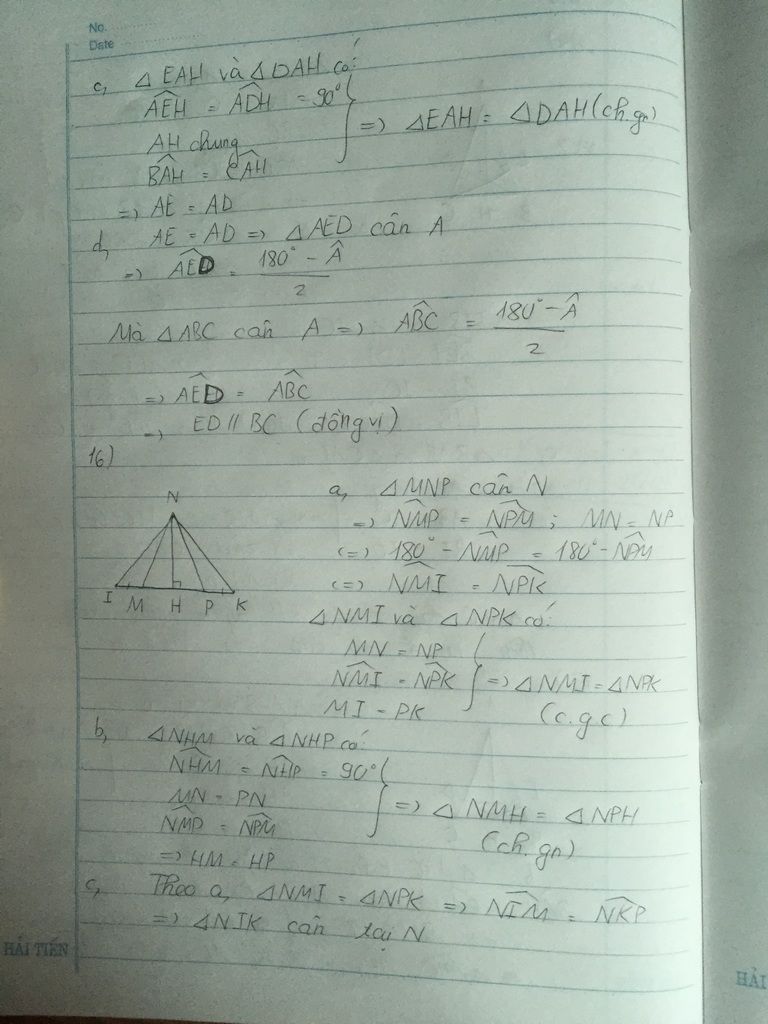 No.
Date
c, △EAH và △DAH có:
AEH = ADH = 90°
AH chung
BAH = CAH
=> △EAH = △DAH (ch.gn)
=> AE = AD
d, AE = AD => △AED cân A
=> AED = 180° - Â / 2
Mà △ABC cân A => ABC = 180° - Â / 2
=> AED = ABC
=> ED // BC (đồng vị)
16)
N
I M H P K
a, △MNP cân N
=> NMP = NPM ; MN = NP
(=) 180° - NMP = 180° - NPM
(=) NMI = NPK
△NMI và △NPK có:
MN = NP
NMI = NPK
MI = PK
=> △NMI = △NPK
(c.g.c)
b, △NHM và △NHP có:
NHM = NHP = 90°
MN = PN
NMP = NPM
=> △NMH = △NPH
(ch.gn)
=> HM = HP
c, Theo a, △NMI = △NPK => NIM = NKP
=> △NIK cân tại N
HẢI TIẾN
HẢI